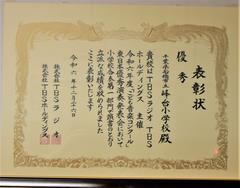 表彰状
優秀
千葉県船橋市立 峰台小学校殿
貴校はTBSラジオ TBS
ホールディングス 主催
令和六年度「こども音楽コンクール」
東日本優秀演奏発表会において
小学校合奏第一部門で頭書のとおり
立派な成績を収められました
ここに表彰いたします
令和六年十二月二十六日
株式会社 TBSラジオ
株式会社 TBSホールディングス